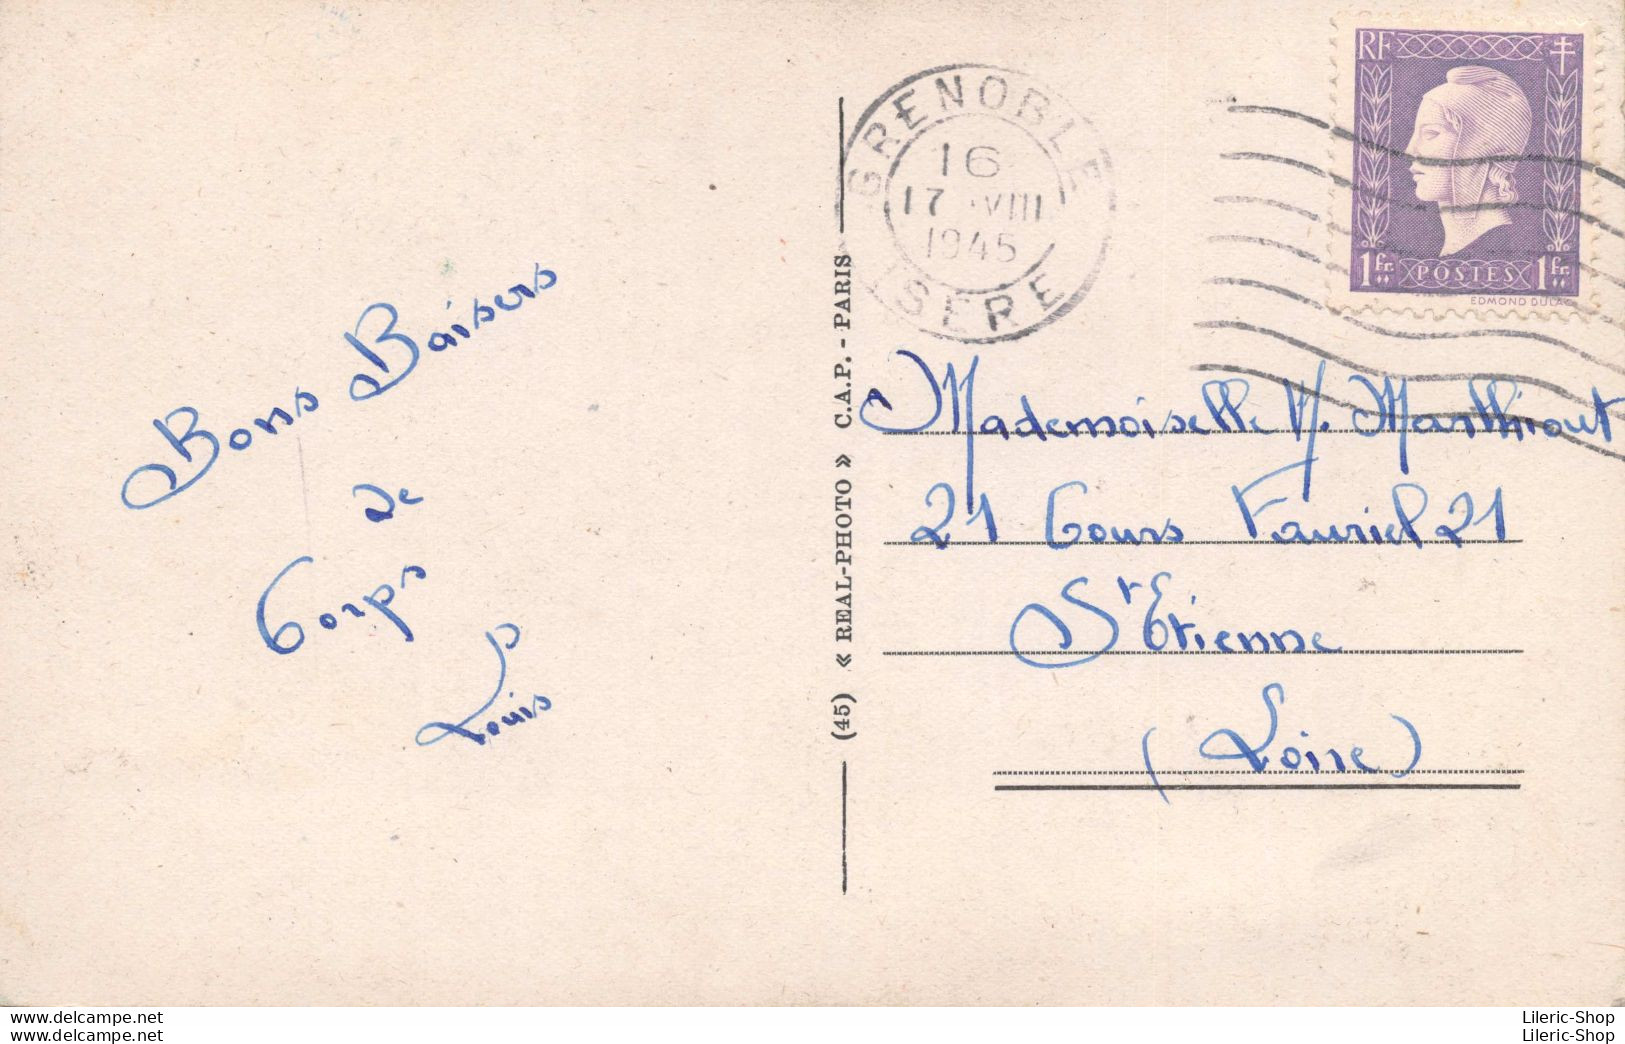 GRENOBLE
16
17 VIII
1945
ISERE
RF
1fr. POSTES 1fr.
EDMOND DULAC
Bons Baisers
de
Corps
Louis
(45) « REAL-PHOTO » C.A.P. - PARIS
Mademoiselle
21 Cours Fauriel 21
St Etienne
(Loire)
www.delcampe.net
www.delcampe.net
Lileric-Shop
Lileric-Shop